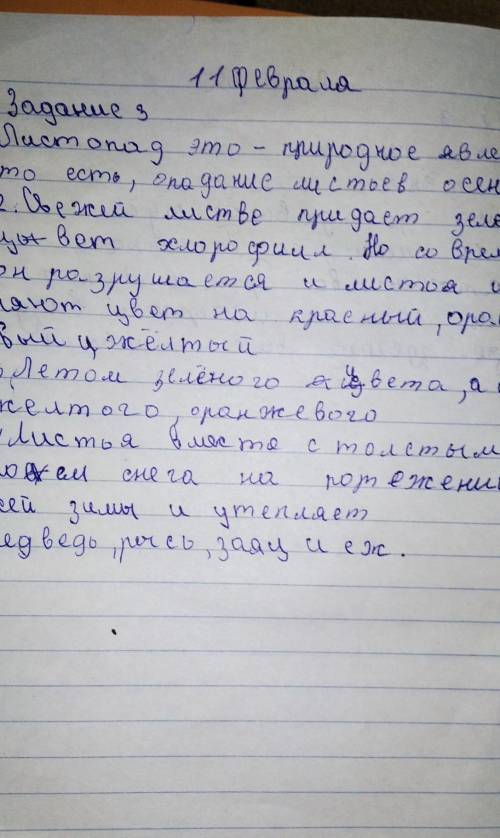 11 Февраля
Задание 3
Листопад это - природное явле
то есть, опадание листьев осен
2. Свежей листве придает зеле
цвет хлорофилл. Но со врем
он разрушается и листья и
няют цвет на красный, оран
вый и жёлтый
Летом зелёного цвета, а
желтого, оранжевого
Листья вместе с толстым
ем снега на ротежении
сей зимы и утепляет
едведь, рысь, заяц и еж.